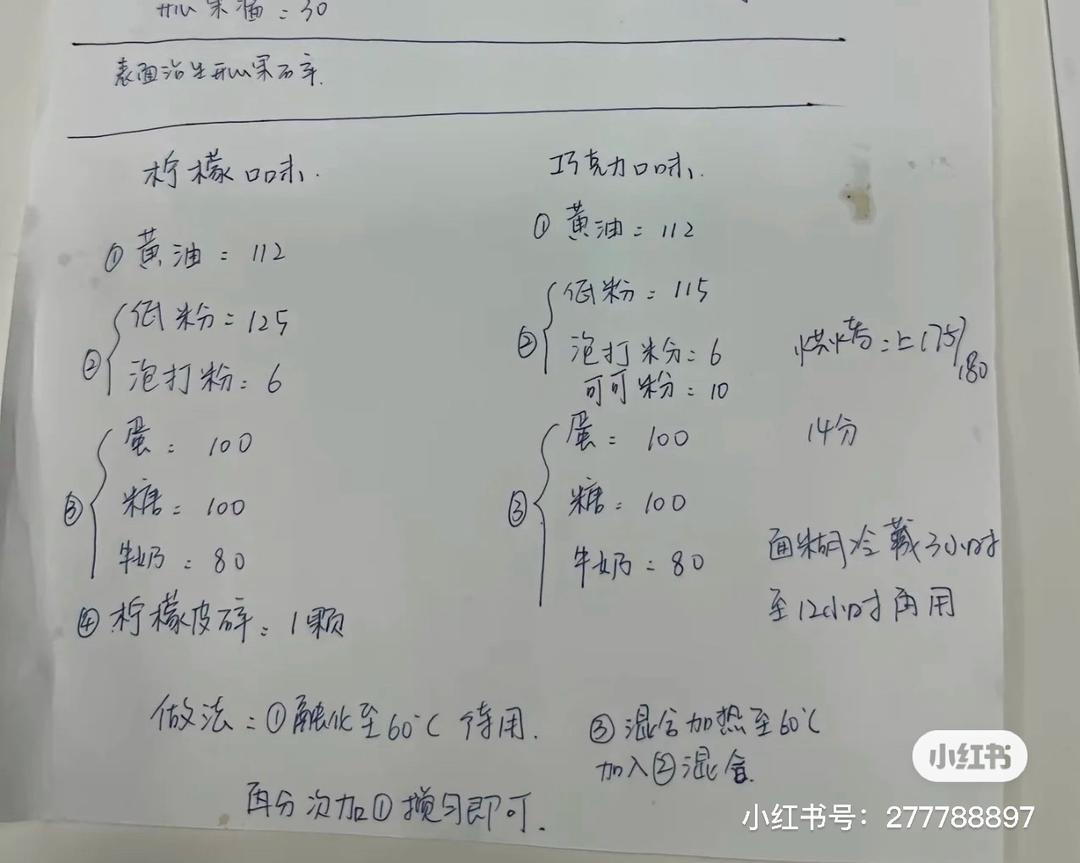 开心果酱:30
表面沾生开心果碎.
柠檬口味.
①黄油:112
②低粉:125
泡打粉:6
③蛋:100
糖:100
牛奶:80
④柠檬皮碎:1颗
巧克力口味.
①黄油:112
②低粉:115
泡打粉:6
可可粉:10
③蛋:100
糖:100
牛奶:80
烘烤:上175/180
14分
面糊冷藏3小时
至12小时再用
做法:①融化至60℃待用.
③混合加热至60℃
加入②混合.
再分次加①搅匀即可.
小红书
小红书号:277788897